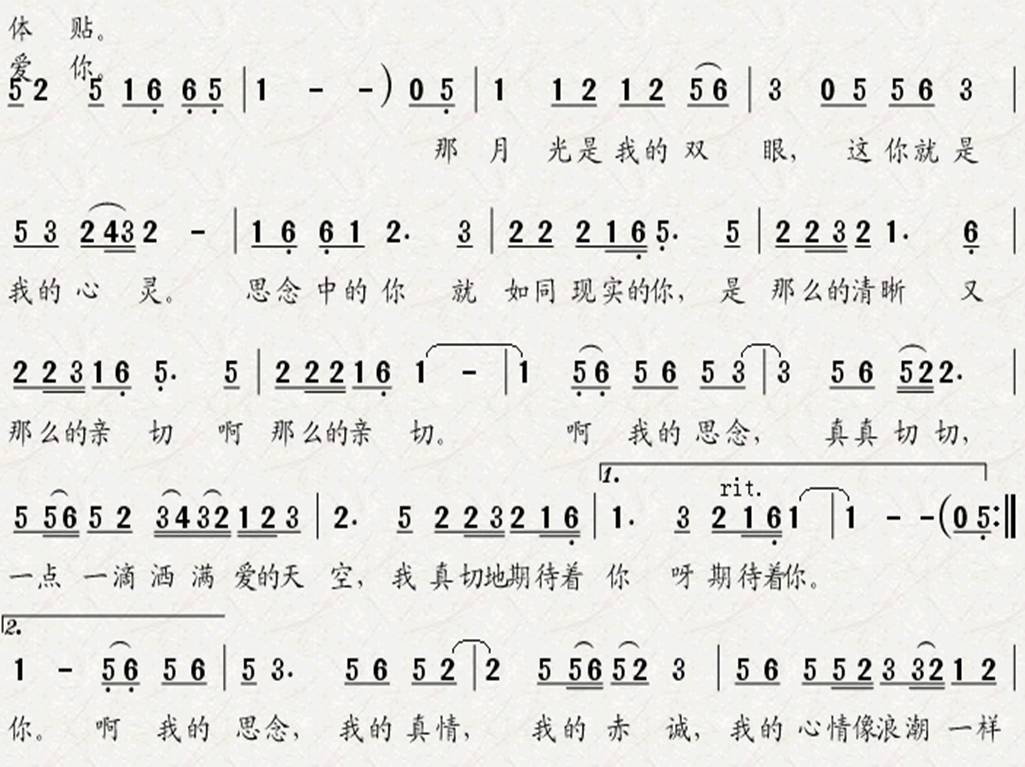 体 贴。
爱 你。
5 2 5 1 6 6 5 | 1 - - ) 0 5 | 1 1 2 1 2 5 6 | 3 0 5 5 6 3 |
那 月 光是我的 双 眼， 这 你就 是
5 3 2 4 3 2 - | 1 6 6 1 2. 3 | 2 2 2 1 6 5. 5 | 2 2 3 2 1. 6 |
我的 心 灵。 思念 中的 你 就 如同 现实的你， 是 那么的清晰 又
2 2 3 1 6 5. 5 | 2 2 2 1 6 1 - | 1 5 6 5 6 5 3 | 3 5 6 5 2 2. |
那么的亲 切 啊 那么的亲 切。 啊 我的 思念， 真真 切切，
1. rit.
5 5 6 5 2 3 4 3 2 1 2 3 | 2. 5 2 2 3 2 1 6 | 1. 3 2 1 6 1 | 1 - - ( 0 5 :||
一点 一滴 洒 满 爱的天 空， 我 真切地期待着 你 呀 期待着你。
2.
1 - 5 6 5 6 | 5 3. 5 6 5 2 | 2 5 5 6 5 2 3 | 5 6 5 5 2 3 3 2 1 2 |
你。 啊 我的 思念， 我的 真情， 我的 赤 诚， 我的 心情像浪潮 一样